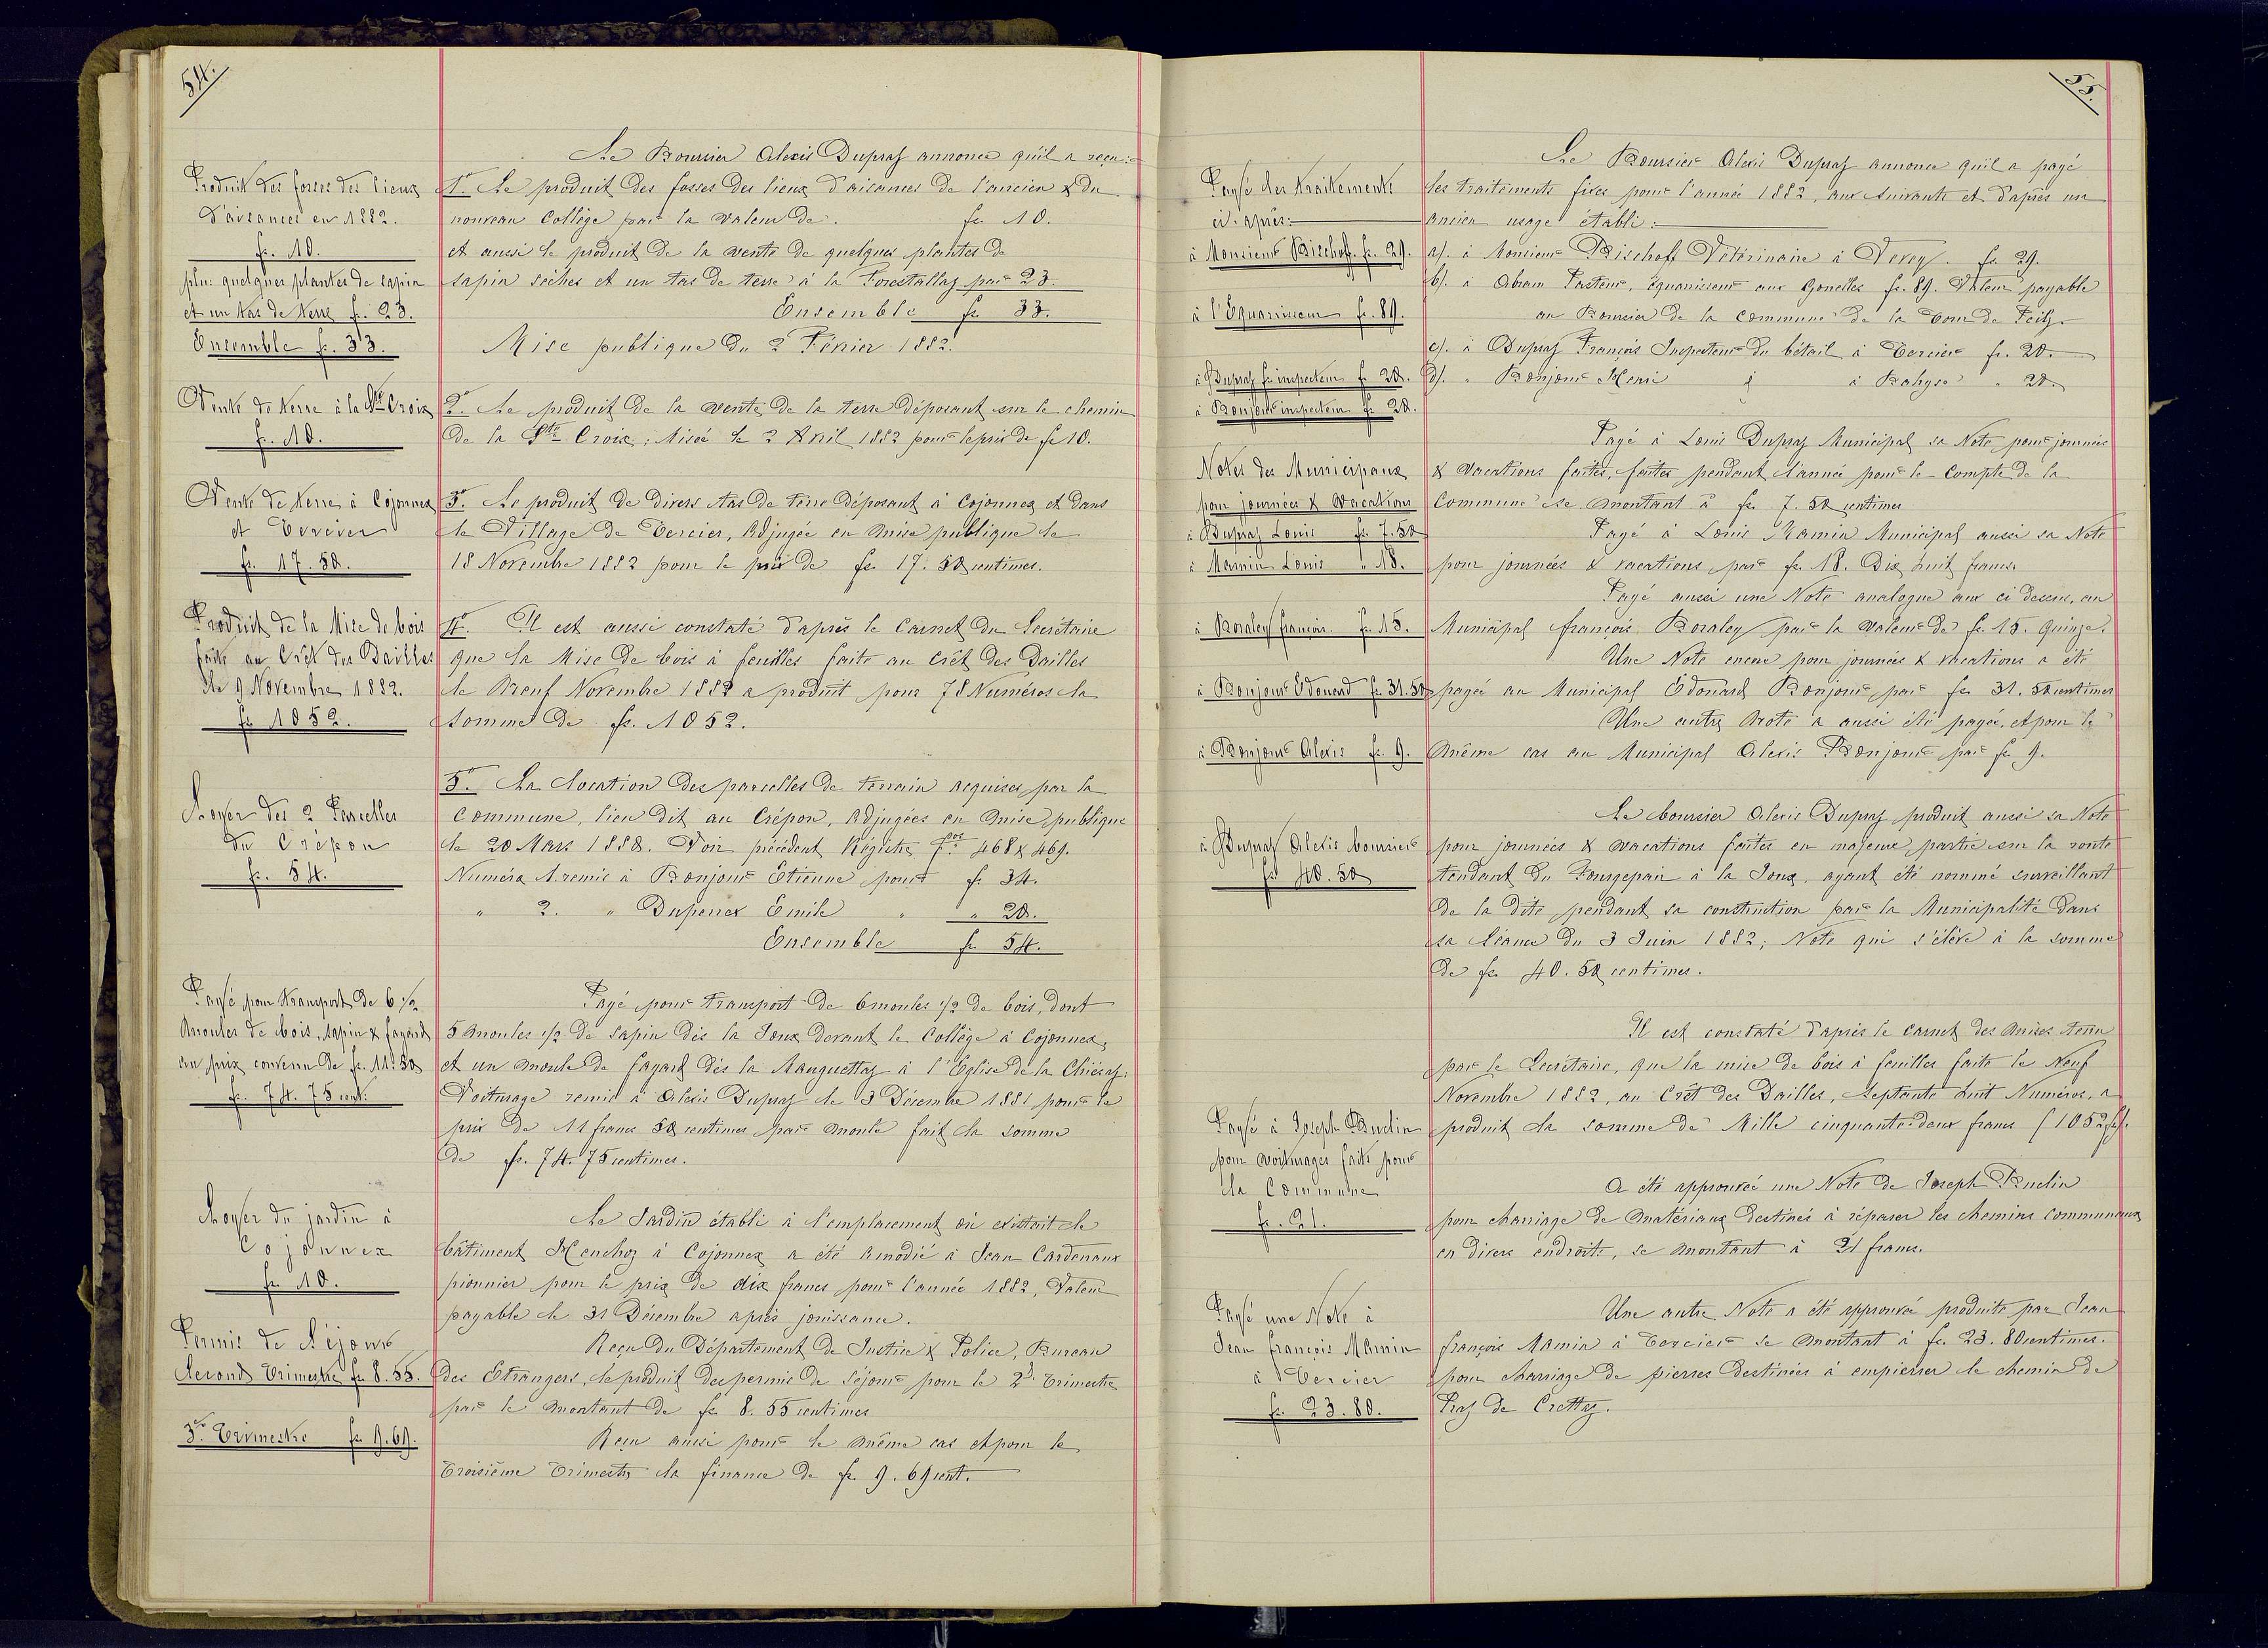 54.
Le Boursier Alexis Dupraz annonce qu'il a reçu:
Produit des fosses des lieux
d'aisances en 1882.
fr. 10.
plus quelques plantes de sapin
et un tas de terre fr. 23.
Ensemble fr. 33.
1o. Le produit des fosses des lieux d'aisances de l'ancien & du
nouveau Collège par la valeur de. fr. 10.
et aussi le produit de la vente de quelques plantes de
sapin sèches et un tas de terre à la Forestallaz par 23.
Ensemble fr. 33.
Mise publique du 2 Février 1882.
Vente de terre à la Ste Croix
fr. 10.
2o. Le produit de la vente de la terre déposant sur le chemin
de la Ste Croix; Misée le 2 Avril 1882 pour le prix de fr 10.
Vente de terre à Cojonnex
et Tercier
fr. 17.50.
3o. Le produit de divers tas de terre déposant à Cojonnex et dans
le Village de Tercier, Adjugée en mise publique le
18 Novembre 1882 pour le prix de fr. 17.50 centimes.
Produit de la Mise de bois
faite au Crêt des Dailles
le 9 Novembre 1882.
fr 1052.
4o. Il est aussi constaté d'après le Carnet du Secrétaire
que la Mise de bois à feuilles faite au Crêt des Dailles
le Neuf Novembre 1882 a produit pour 78 Numéros la
somme de fr. 1052.
Loyer des 2 Parcelles
du Crépon
fr. 54.
5o. La location des parcelles de terrain acquises par la
Commune, lieu dit au Crépon, Adjugées en mise publique
le 20 Mars 1880. Voir précédent Régistre fos 468 & 469.
Numéro 1. remis à Bonjour Etienne pour fr 34.
" 2. " Duperrex Emile " " 20.
Ensemble fr 54.
Payé pour transport de 6 1/2
moules de bois, sapin & fayard
au prix convenu de fr. 11.50
fr. 74.75 cent:
Payé pour transport de 6 moules 1/2 de bois, dont
5 moules 1/2 de sapin dès la Joux devant le Collège à Cojonnex,
et un moule de fayard dès la Manguettaz à l'Eglise de la Chiésaz:
Voiturage remis à Alexis Dupraz le 3 Décembre 1881 pour le
prix de 11 francs 50 centimes par moule fait la somme
de fr. 74.75 centimes.
Loyer du jardin à
Cojonnex
fr 10.
Le Jardin établi à l'emplacement où existait le
bâtiment Menchoz à Cojonnex a été amodié à Jean Cardenaux
pionnier pour le prix de dix francs pour l'année 1882, Valeur
payable le 31 Décembre après jouissance.
Permis de Séjour
Second Trimestre fr 8.55.
Reçu du Département de Justice & Police, Bureau
des Etrangers, le produit des permis de séjour pour le 2d Trimestre
par le montant de fr 8.55 centimes
3e Trimestre fr 9.69.
Reçu aussi pour le même cas et pour le
Troisième Trimestre la finance de fr 9.69 cent.
55.
Le Boursier Alexis Dupraz annonce qu'il a payé
Payé des traitements
ci-après:
les traitements fixes pour l'année 1882, aux suivants et d'après un
ancien usage établi:
à Monsieur Bischoff. fr. 29.
a/. à Monsieur Bischoff Vétérinaire à Vevey. fr. 29.
à l'Equarrisseur fr. 89.
b/. à Abram Pasteur, équarrisseur aux Gonelles fr. 89. Valeur payable
au Boursier de la commune de la Tour de Peilz.
à Dupraz fs inspecteur fr 20.
c/. à Dupraz François Inspecteur du bétail à Tercier fr. 20.
à Bonjour inspecteur fr 20.
d/. " Bonjour Henri à Bahyse " 20.
Notes des Municipaux
pour journées & vacations
Payé à Louis Dupraz Municipal sa Note pour journées
& vacations faites, faites pendant l'année pour le Compte de la
Commune se montant à fr 7.50 centimes
à Dupraz Louis fr. 7.50
à Mamin Louis " 18.
Payé à Louis Mamin Municipal aussi sa Note
pour journées & vacations par fr. 18. Dix huit francs.
Payé aussi une Note analogue aux ci dessus, au
à Boraley françois. fr. 15.
Municipal françois Boraley par la valeur de fr. 15. quinze.
Une Note encore pour journées & vacations a été
à Bonjour Edouard fr 31.50
payée au Municipal Edouard Bonjour par fr 31.50 centimes
Une autre Note a aussi été payée, et pour le
à Bonjour Alexis fr. 9.
même cas au Municipal Alexis Bonjour par fr 9.
à Dupraz Alexis boursier
fr 40.50
Le boursier Alexis Dupraz produit aussi sa Note
pour journées & vacations faites en majeure partie sur la route
tendant du Tourgepain à la Joux, ayant été nommé surveillant
de la dite pendant sa construction par la Municipalité dans
sa Séance du 3 Juin 1882; Note qui s'élève à la somme
de fr 40.50 centimes.
Il est constaté d'après le Carnet des mises tenu
par le Secrétaire, que la mise de bois à feuilles faite le Neuf
Novembre 1882, au Crêt des Dailles, Septante huit Numéros, a
produit la somme de Mille cinquante deux francs (1052 fr).
Payé à Joseph Budin
pour voiturages faits pour
la Commune
fr. 21.
A été approuvée une Note de Joseph Budin
pour charriage de matériaux destinés à réparer les chemins communaux
en divers endroits, se montant à 21 francs.
Payé une Note à
Jean françois Mamin
à Tercier
fr. 23.80.
Une autre Note a été approuvée produite par Jean
françois Mamin à Tercier se montant à fr. 23.80 centimes.
pour charriage de pierres destinées à empierrer le chemin de
Praz de Crettaz.